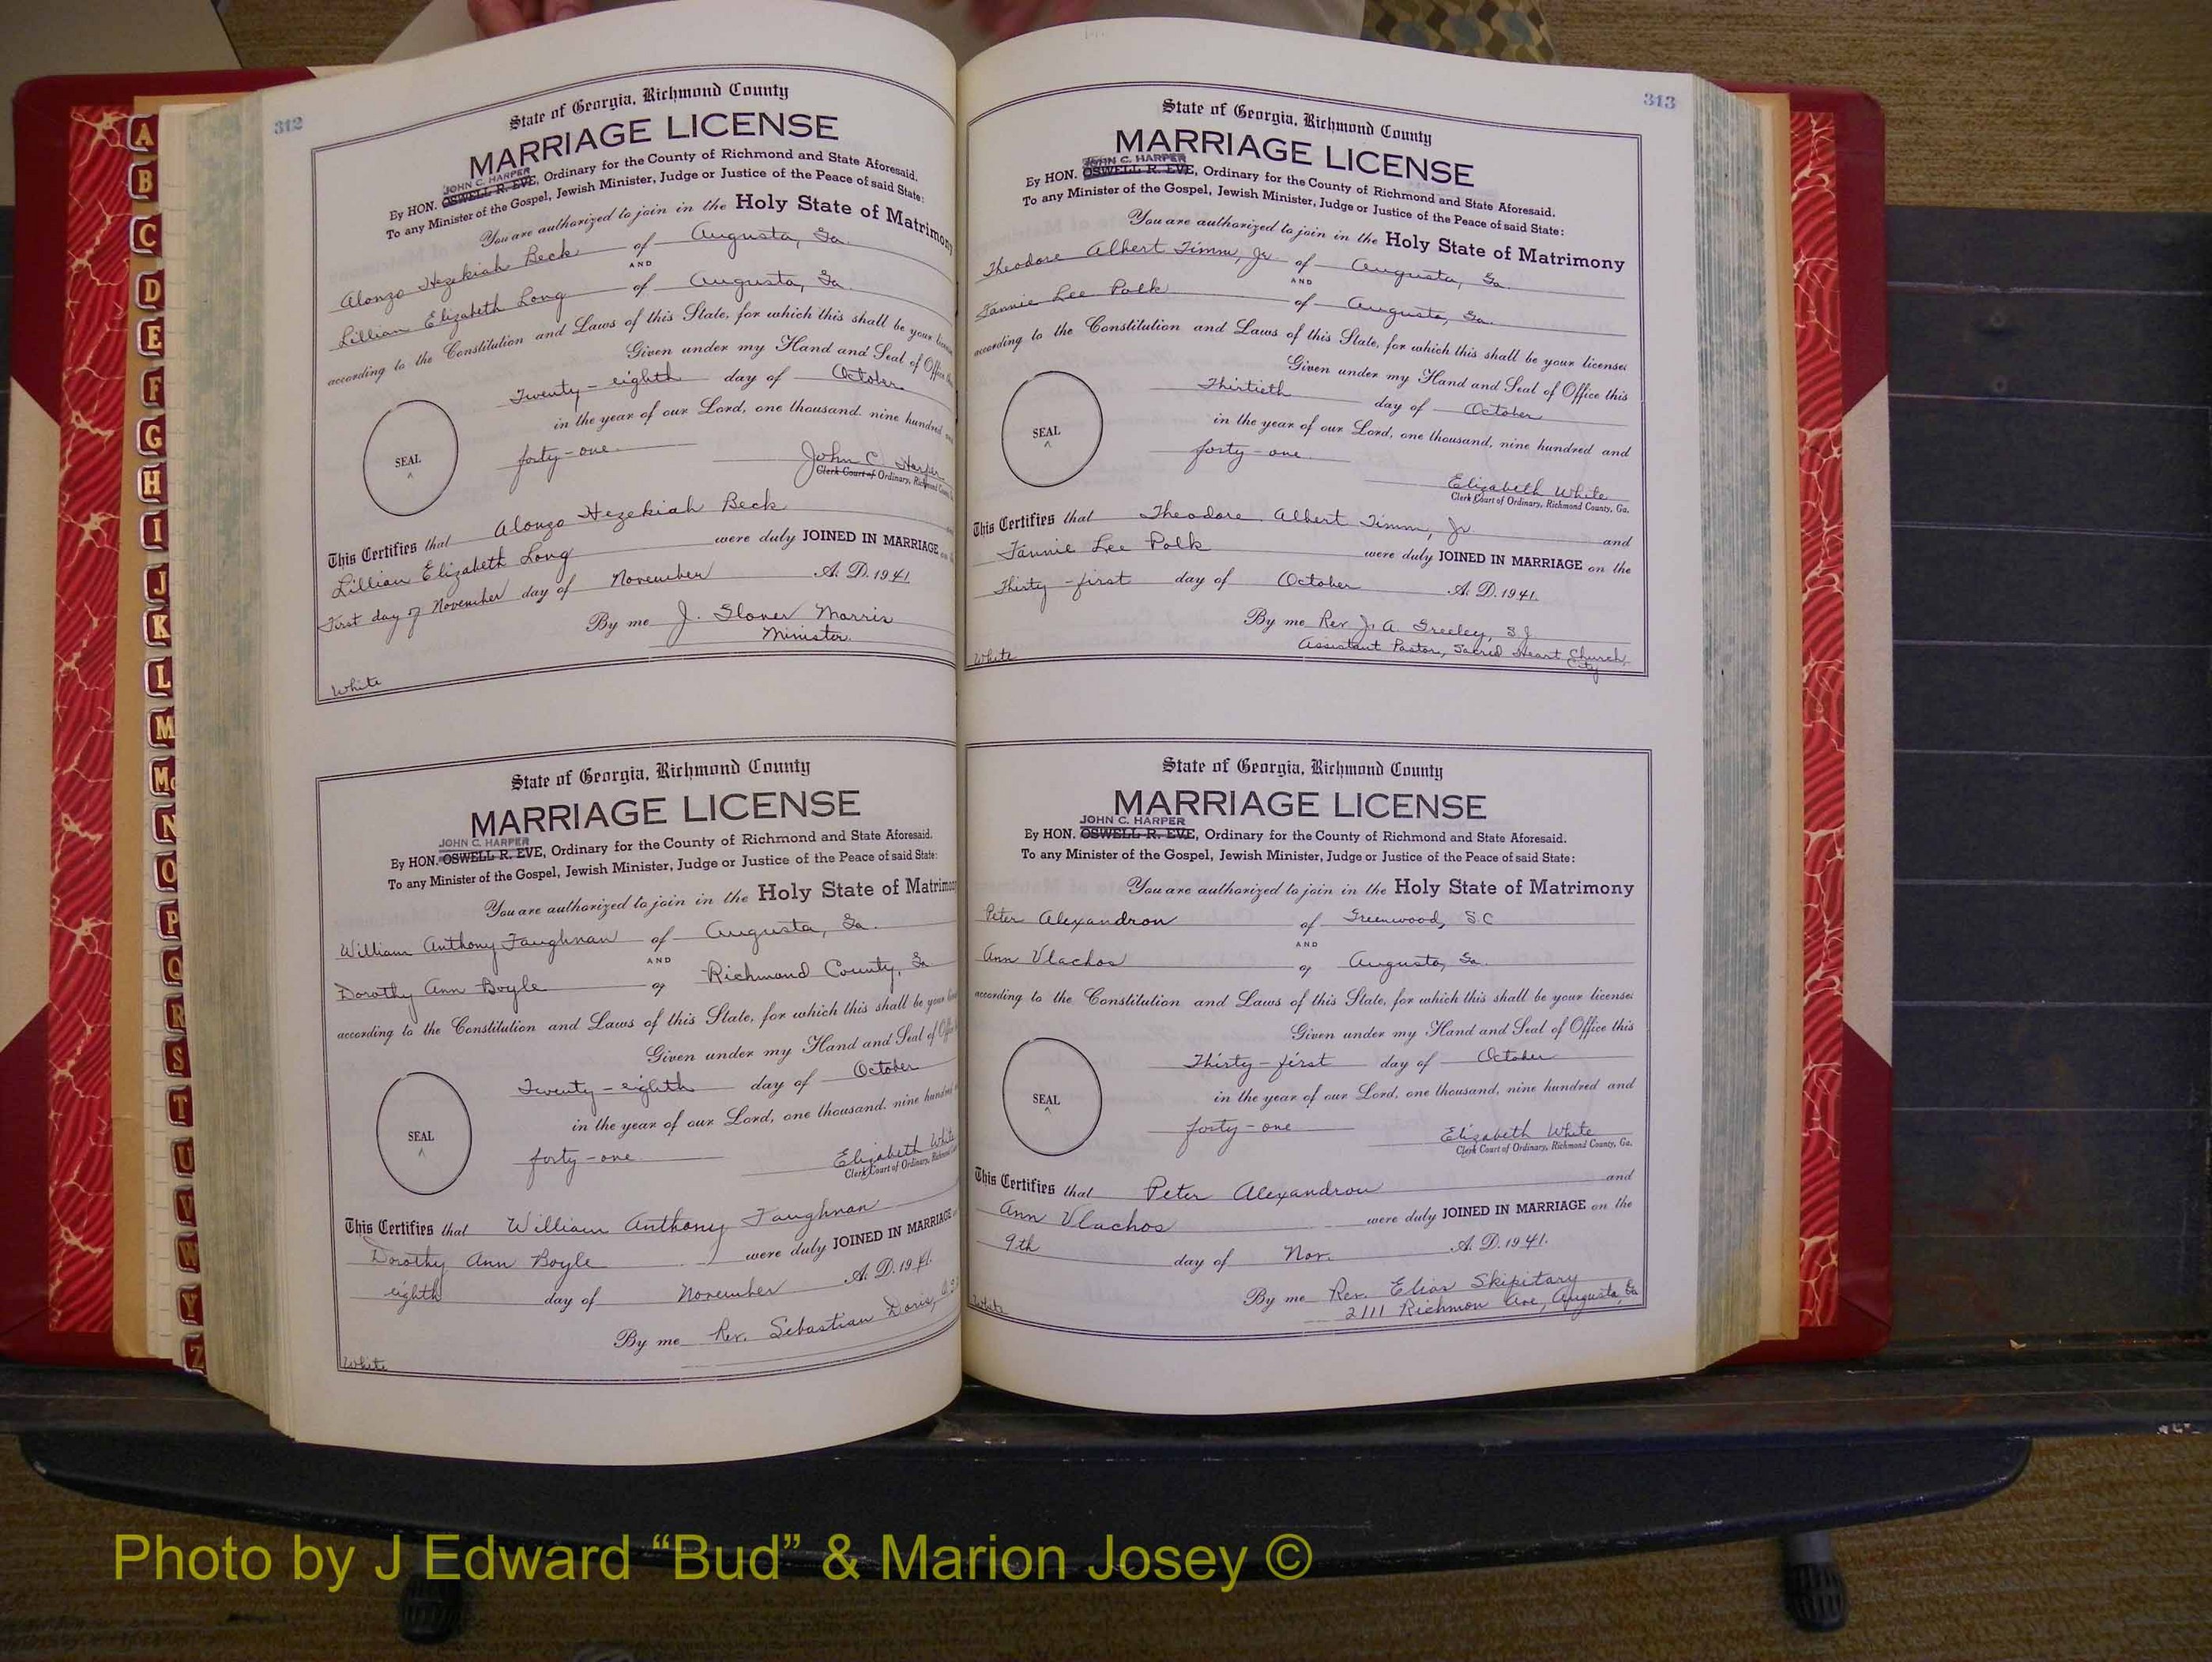 312
State of Georgia, Richmond County
MARRIAGE LICENSE
JOHN C. HARPER
By HON. OSWELL R. EVE, Ordinary for the County of Richmond and State Aforesaid.
To any Minister of the Gospel, Jewish Minister, Judge or Justice of the Peace of said State:
You are authorized to join in the Holy State of Matrimony
Alonzo Hezekiah Beck of Augusta, Ga.
AND
Lillian Elizabeth Long of Augusta, Ga.
according to the Constitution and Laws of this State, for which this shall be your license
Given under my Hand and Seal of Office
Twenty-eighth day of October
in the year of our Lord, one thousand, nine hundred
SEAL forty-one
John C. Harper
Clerk Court of Ordinary, Richmond
This Certifies that Alonzo Hezekiah Beck
Lillian Elizabeth Long were duly JOINED IN MARRIAGE on
First day of November day of November A. D. 1941.
By me J. Sloner Morris
Minister
White
State of Georgia, Richmond County
MARRIAGE LICENSE
JOHN C. HARPER
By HON. OSWELL R. EVE, Ordinary for the County of Richmond and State Aforesaid.
To any Minister of the Gospel, Jewish Minister, Judge or Justice of the Peace of said State:
You are authorized to join in the Holy State of Matrimony
William Anthony Faughnan of Augusta, Ga.
AND
Dorothy Ann Boyle of Richmond County, Ga
according to the Constitution and Laws of this State, for which this shall be your
Given under my Hand and Seal of Office
Twenty-eighth day of October
in the year of our Lord, one thousand, nine hundred
SEAL forty-one
Elizabeth White
Clerk Court of Ordinary, Richmond
This Certifies that William Anthony Faughnan
Dorothy Ann Boyle were duly JOINED IN MARRIAGE
eighth day of November A. D. 1941.
By me Rev. Sebastian Doris,
White
313
State of Georgia, Richmond County
MARRIAGE LICENSE
JOHN C. HARPER
By HON. OSWELL R. EVE, Ordinary for the County of Richmond and State Aforesaid.
To any Minister of the Gospel, Jewish Minister, Judge or Justice of the Peace of said State:
You are authorized to join in the Holy State of Matrimony
Theodore Albert Timm, Jr of Augusta, Ga.
AND
Fannie Lee Polk of Augusta, Ga.
according to the Constitution and Laws of this State, for which this shall be your license:
Given under my Hand and Seal of Office this
Thirtieth day of October
in the year of our Lord, one thousand, nine hundred and
SEAL forty-one
Elizabeth White
Clerk Court of Ordinary, Richmond County, Ga.
This Certifies that Theodore Albert Timm, Jr and
Fannie Lee Polk were duly JOINED IN MARRIAGE on the
Thirty-first day of October A. D. 1941.
By me Rev. J. A. Greeley, S J
Assistant Pastor, Sacred Heart Church,
City
White
State of Georgia, Richmond County
MARRIAGE LICENSE
JOHN C. HARPER
By HON. OSWELL R. EVE, Ordinary for the County of Richmond and State Aforesaid.
To any Minister of the Gospel, Jewish Minister, Judge or Justice of the Peace of said State:
You are authorized to join in the Holy State of Matrimony
Peter Alexandrou of Greenwood, S C
AND
Ann Vlachos of Augusta, Ga.
according to the Constitution and Laws of this State, for which this shall be your license:
Given under my Hand and Seal of Office this
Thirty-first day of October
in the year of our Lord, one thousand, nine hundred and
SEAL forty-one
Elizabeth White
Clerk Court of Ordinary, Richmond County, Ga.
This Certifies that Peter Alexandrou and
Ann Vlachos were duly JOINED IN MARRIAGE on the
9th day of Nov. A. D. 1941.
By me Rev. Elias Skipitary
2111 Richmon Ave, Augusta, Ga
White
A
B
C
D
E
F
G
H
I
J
K
L
M
Mc
N
O
P
Q
R
S
T
U
V
W
Y
Z
Photo by J Edward “Bud” & Marion Josey ©